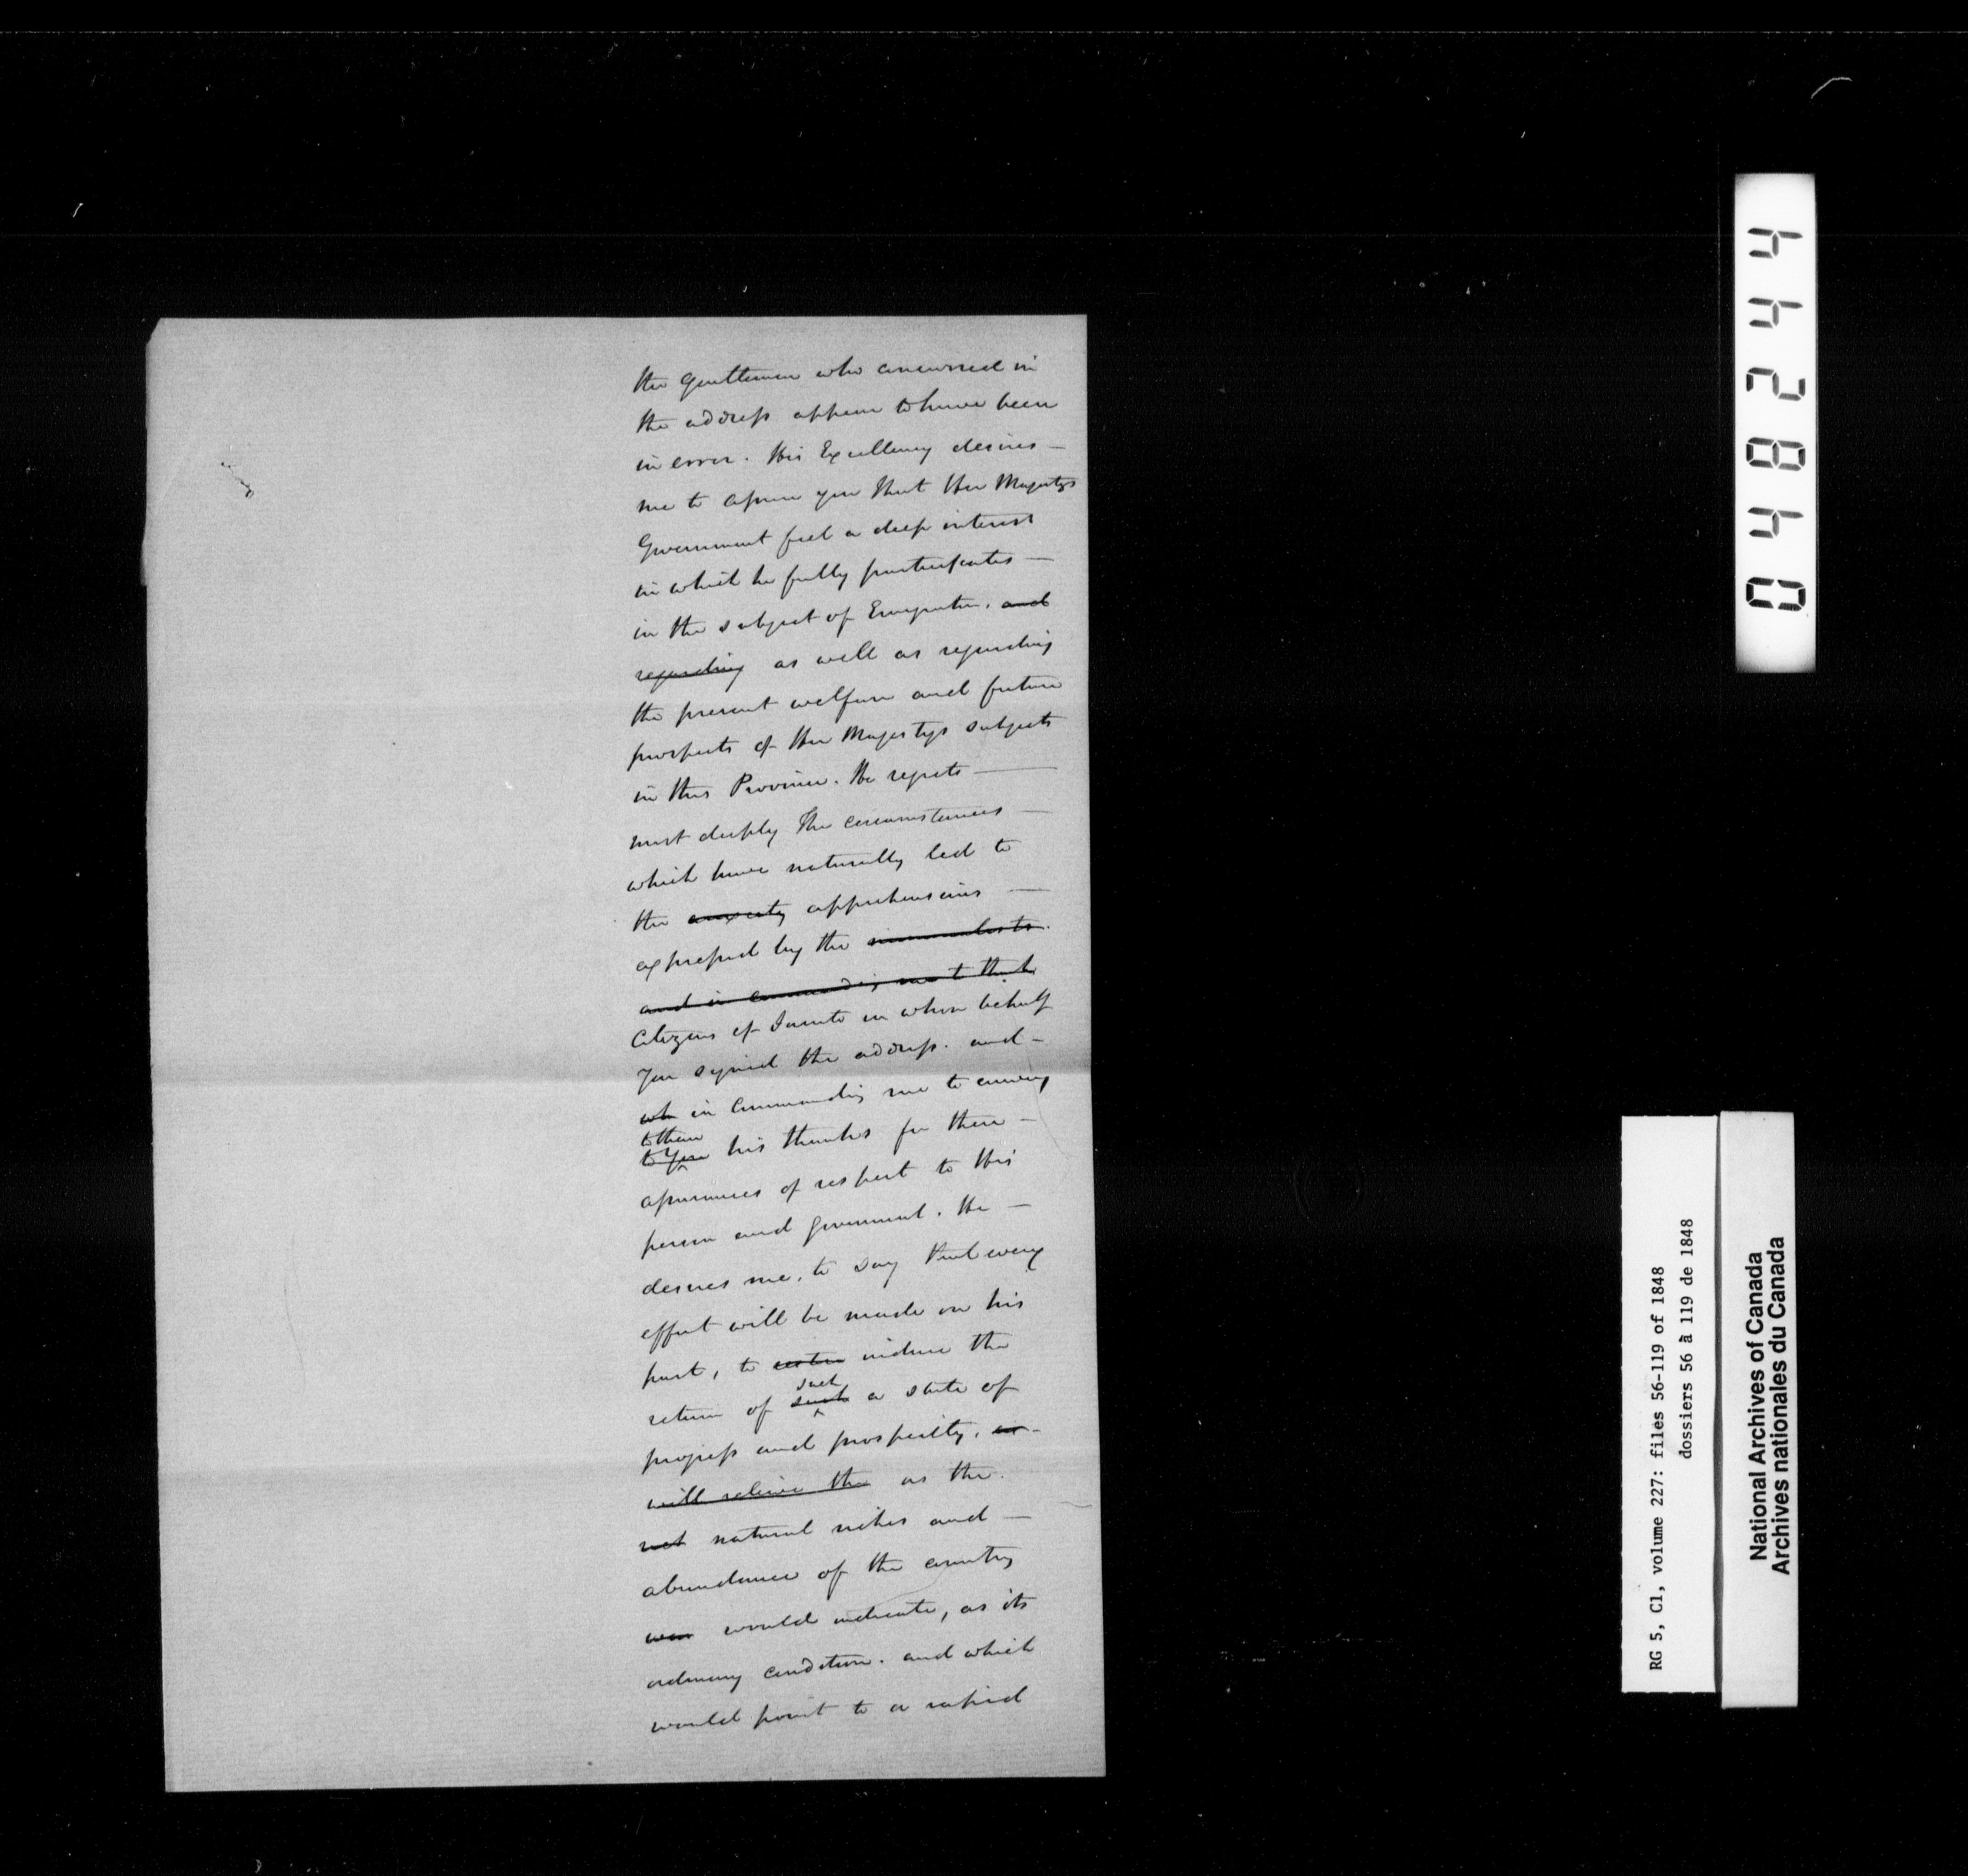 the Gentlemen who concurred in
the address appear to have been
in error. His Excellency desires —
me to assure you that Her Majestys
Government feel a deep interest
in which he fully participates —
in the subject of Emigration. and
regarding as well as regarding
the present welfare and future
prospects of Her Majestys subjects
in this Province. He regrets —
most deeply the circumstances —
which have naturally led to
the anxiety apprehensions —
expressed by the
and in commanding me to thank
Citizens of Toronto in whose behalf
you signed the address. and —
wh in commanding me to convey
to them
to you his thanks for their —
assurances of respect to his
person and government. He —
desires me, to say that every
effort will be made on his
part, to restore induce the
such
return of such a state of
progress and prosperity, as —
will relieve the as the
nat natural riches and —
abundance of the country
would indicate, as its
ordinary condition. and which
would point to a rapid
044284244
RG 5, C1, volume 227: files 56-119 of 1848
dossiers 56 à 119 de 1848
National Archives of Canada
Archives nationales du Canada